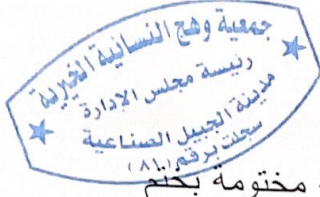 جمعية وهج النسائية الخيرية
رئيسة مجلس الإدارة
مدينة الجبيل الصناعية
سجلت برقم (٨١٠)
مختومة بختم